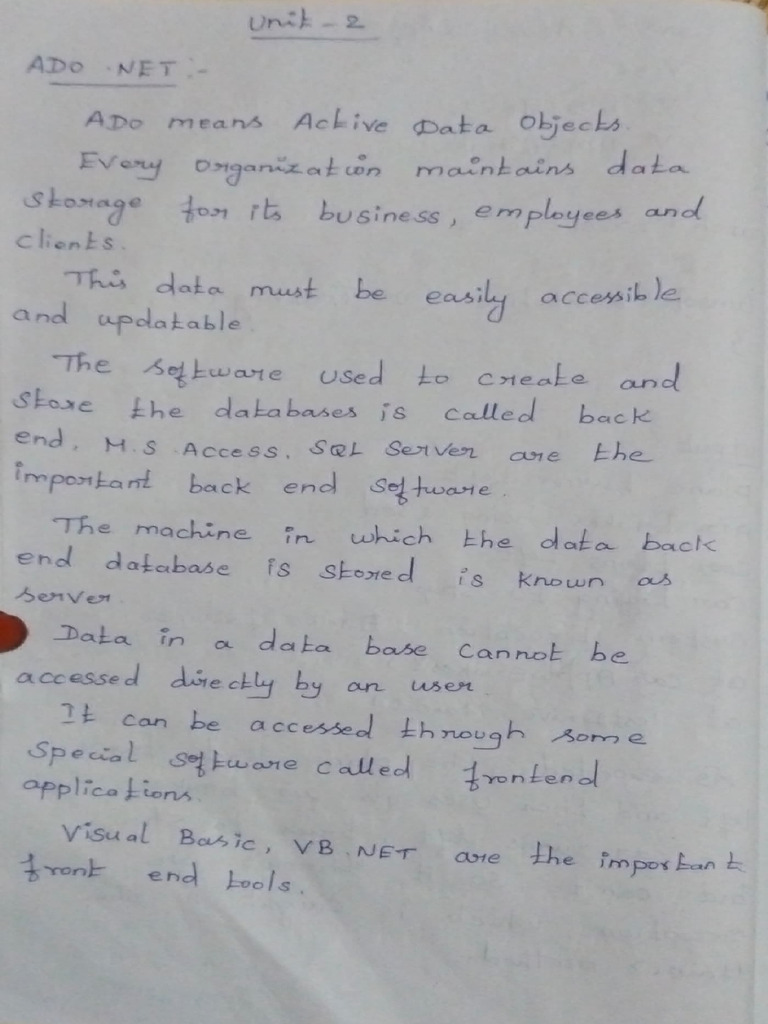 Unit - 2
ADO .NET :-
ADO means Active Data Objects.
Every organization maintains data
storage for its business, employees and
clients.
This data must be easily accessible
and updatable.
The software used to create and
store the databases is called back
end. M.S Access. SQL Server are the
important back end software.
The machine in which the data back
end database is stored is known as
server.
Data in a data base cannot be
accessed directly by an user.
It can be accessed through some
special software called frontend
applications.
Visual Basic, VB.NET are the important
front end tools.